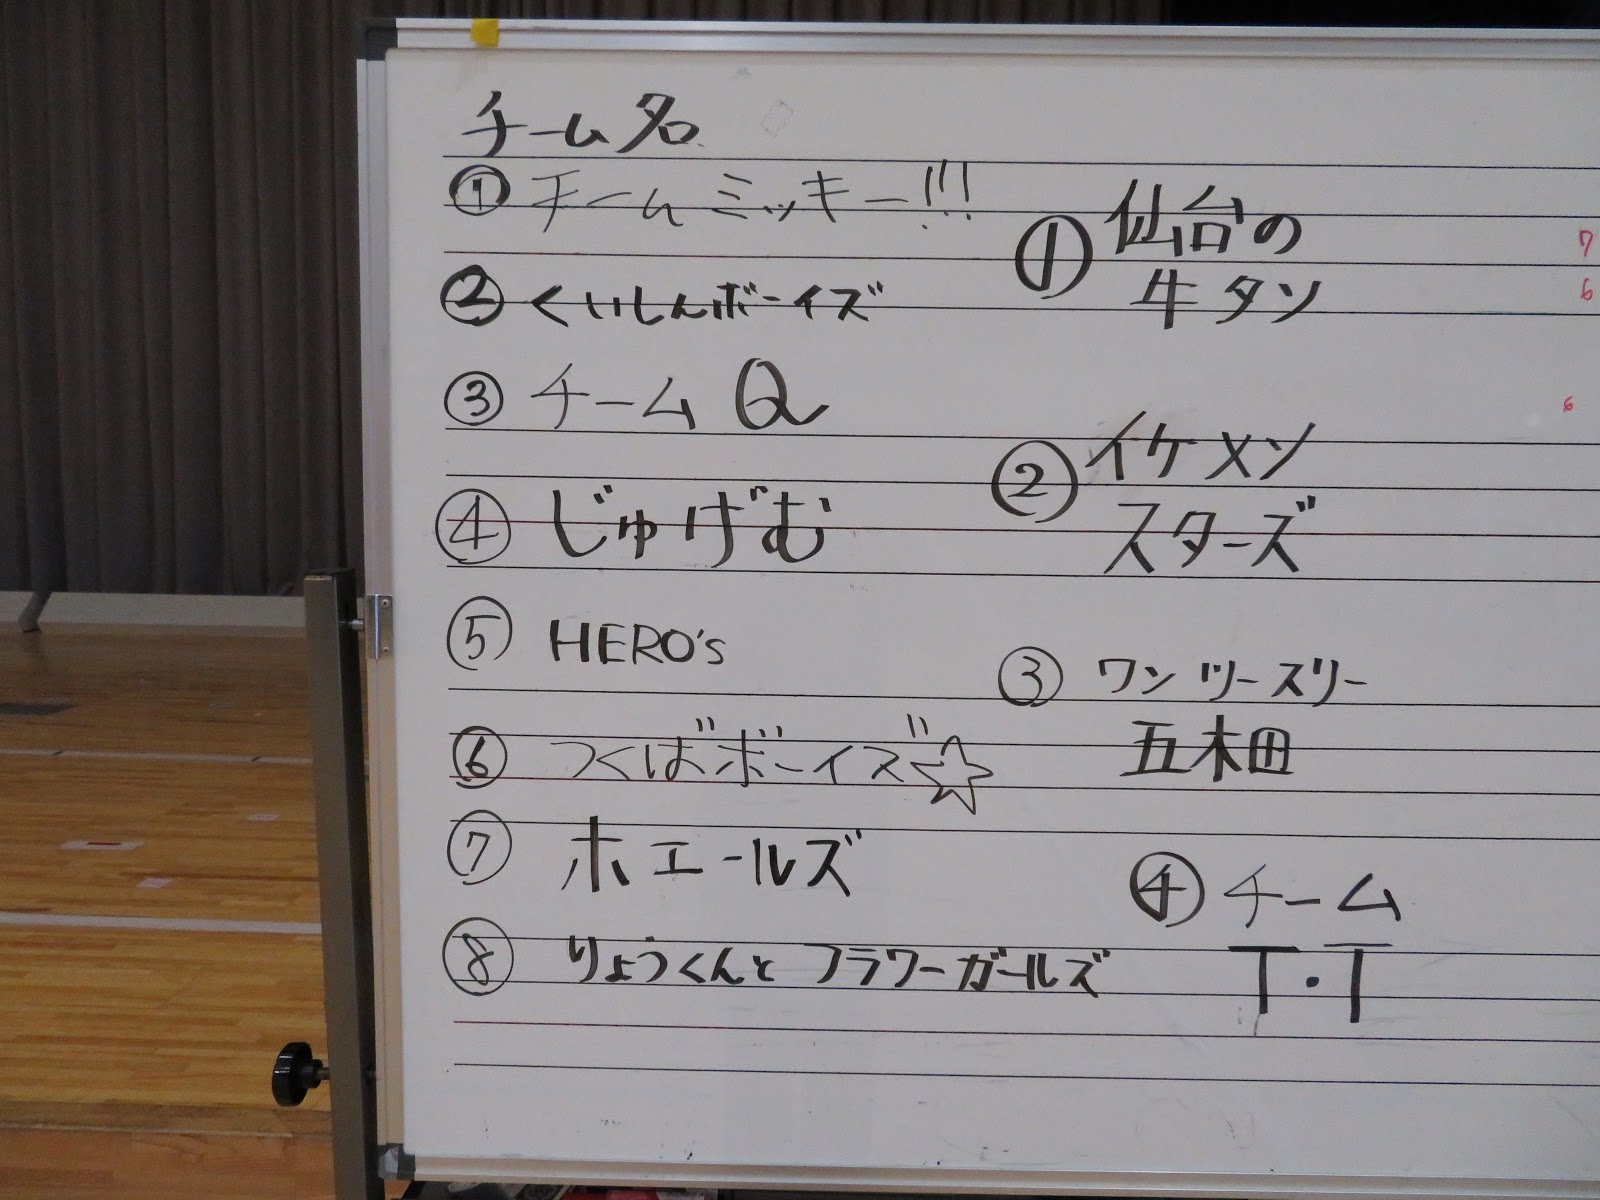 チーム名
① チームミッキー!!!
② くいしんボーイズ
③ チームQ
④ じゅげむ
⑤ HERO's
⑥ つくばボーイズ☆
⑦ ホエールズ
⑧ りょうくんとフラワーガールズ
① 仙台の
牛タン
② イケメン
スターズ
③ ワンツースリー
五木田
④ チーム
T・T
7
6
6